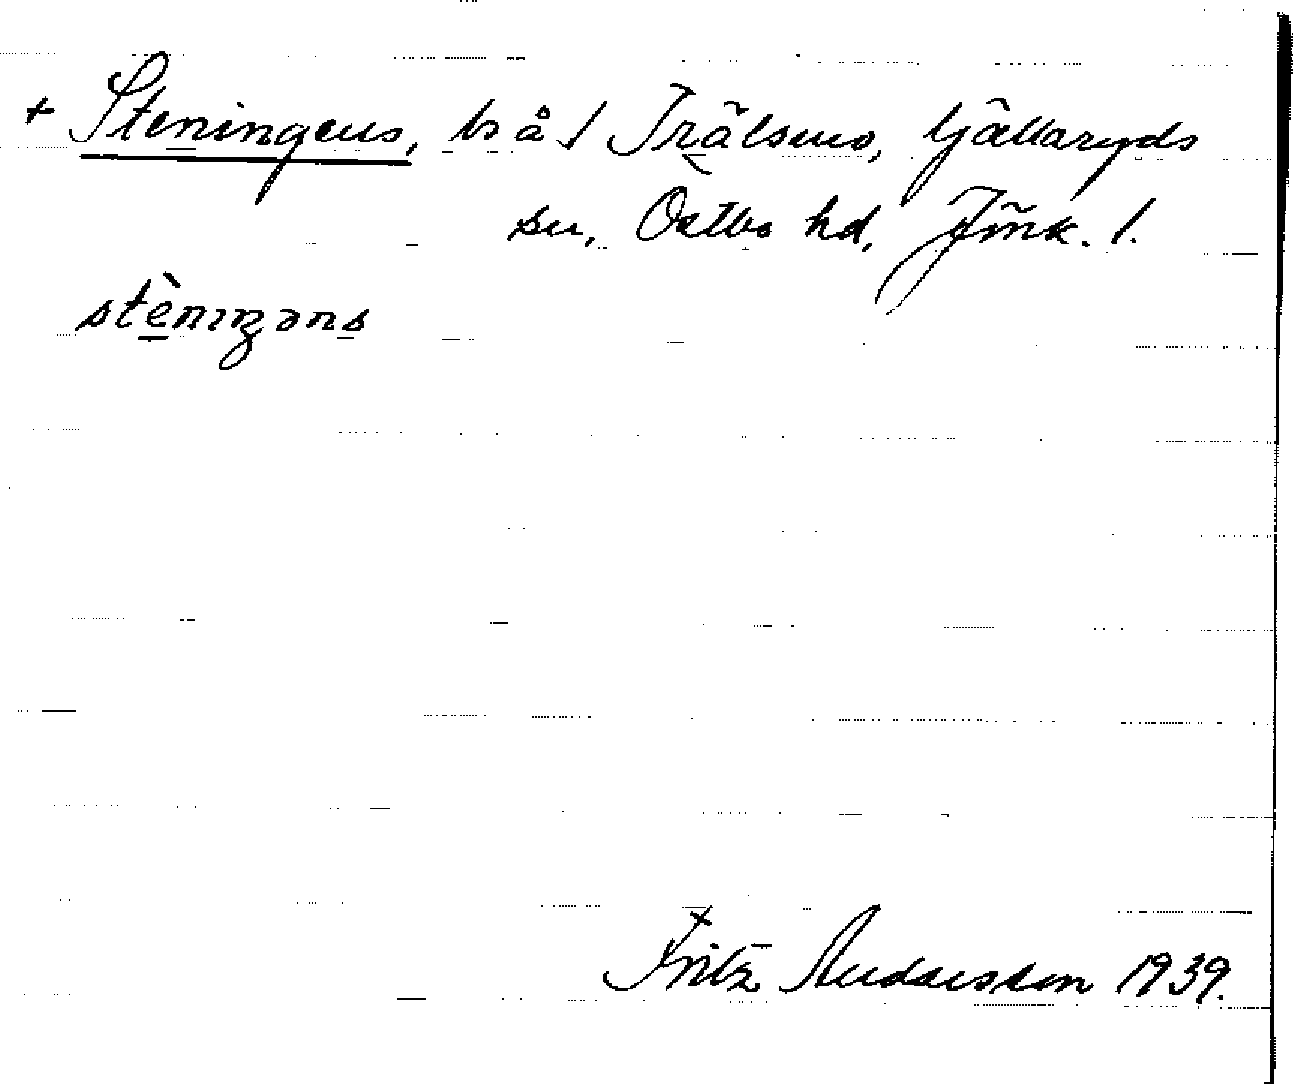 + Steningens, ts å / Trälsmo, Gällaryds
sn, Östbo hd, Jmk. l.
stèniŋəns
Fritz Andersson 1939.